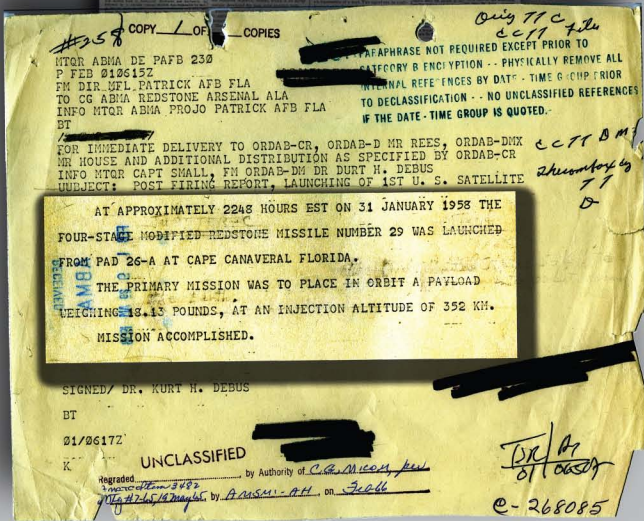 #258
COPY 1 OF COPIES
Orig TTC
CCTT File
MTQR ABMA DE PAFB 230
P FEB 010615Z
FM DIR MFL PATRICK AFB FLA
TO CG ABMA REDSTONE ARSENAL ALA
INFO MTQR ABMA PROJO PATRICK AFB FLA
BT
PARAPHRASE NOT REQUIRED EXCEPT PRIOR TO
CATEGORY B ENCRYPTION - - PHYSICALLY REMOVE ALL
INTERNAL REFERENCES BY DATE - TIME GROUP PRIOR
TO DECLASSIFICATION - - NO UNCLASSIFIED REFERENCES
IF THE DATE - TIME GROUP IS QUOTED.
FOR IMMEDIATE DELIVERY TO ORDAB-CR, ORDAB-D MR REES, ORDAB-DMX
MR HOUSE AND ADDITIONAL DISTRIBUTION AS SPECIFIED BY ORDAB-CR
INFO MTQR CAPT SMALL, FM ORDAB-DM DR DURT H. DEBUS
UUBJECT: POST FIRING REPORT, LAUNCHING OF 1ST U. S. SATELLITE
CCTT DM
TT
D
AT APPROXIMATELY 2248 HOURS EST ON 31 JANUARY 1958 THE
FOUR-STAGE MODIFIED REDSTONE MISSILE NUMBER 29 WAS LAUNCHED
FROM PAD 26-A AT CAPE CANAVERAL FLORIDA.
THE PRIMARY MISSION WAS TO PLACE IN ORBIT A PAYLOAD
WEIGHING 18.13 POUNDS, AT AN INJECTION ALTITUDE OF 352 KM.
MISSION ACCOMPLISHED.
RECEIVED
ABMA
SIGNED/ DR. KURT H. DEBUS
BT
01/0617Z
K
UNCLASSIFIED
Regraded by Authority of C.G. MICOM, per
item 3482
Mtg #7-65, 19 May 65, by AMSMI-AH, on Feb 66
C-268085